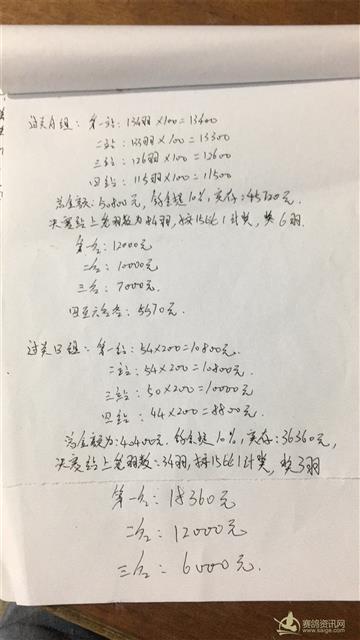 过关A组：第一站：134羽×100=13400
二站：133羽×100=13300
三站：126羽×100=12600
四站：115羽×100=11500
总金额：50800元，鸽会提10%，实存：45720元。
决赛站上笼羽数为84羽，按15取1计奖，奖6羽.
第一名：12000元
二名：10000元
三名：7000元.
四至六名各：5570元.
过关B组：第一站：54×200=10800元.
二站：54×200=10800元.
三站：50×200=10000元
四站：44×200=8800元.
总金额为：40400元.鸽会提10%，实存：36360元，
决赛站上笼羽数=34羽，按15取1计奖，奖3羽
第一名：18360元
二名：12000元
三名：6000元.
赛鸽资讯网
www.saige.com